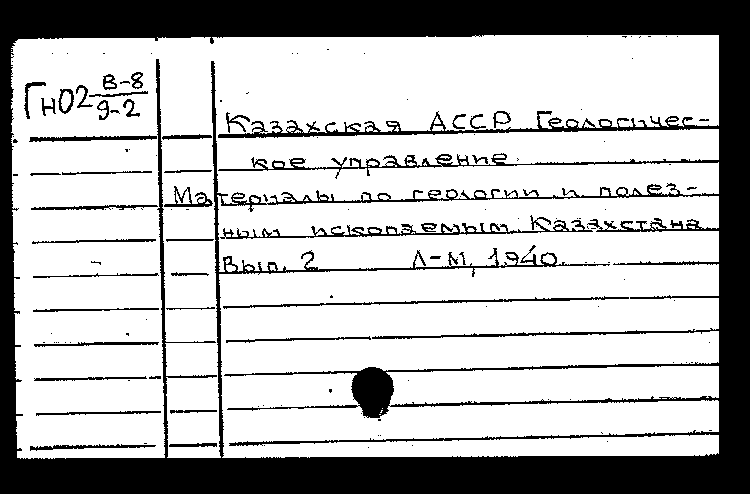 ГнО2 В-8
9-2
Казахская АССР Геологичес-
кое управление
Материалы по геологии и полез-
ным ископаемым Казахстана
Вып. 2 Л-М, 1940.